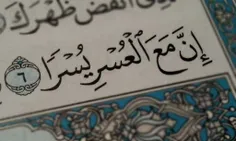 أنقض ظهرك
إِنَّ مَعَ الْعُسْرِ يُسْرًا ٦